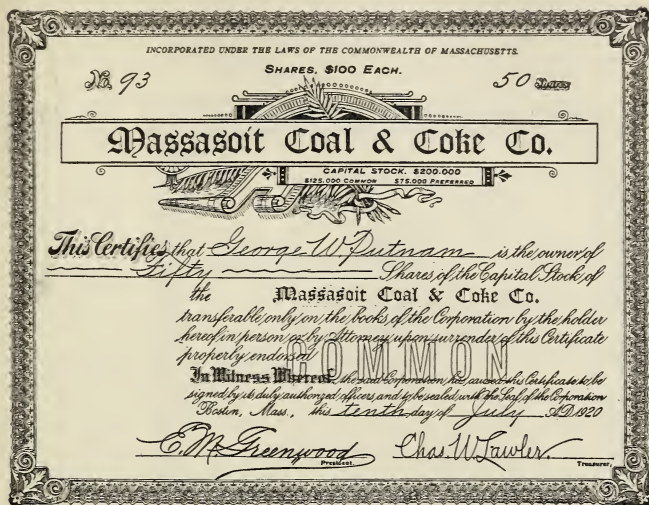 INCORPORATED UNDER THE LAWS OF THE COMMONWEALTH OF MASSACHUSETTS.
SHARES, $100 EACH.
No. 93
50 Shares
Massasoit Coal & Coke Co.
CAPITAL STOCK. $200.000
$125.000 COMMON $75.000 PREFERRED
This Certifies that George W Putnam is the owner of
Fifty Shares of the Capital Stock of
the Massasoit Coal & Coke Co.
transferable only on the books of the Corporation by the holder
hereof in person or by Attorney upon surrender of this Certificate
properly endorsed
COMMON
In Witness Whereof, the said Corporation has caused this Certificate to be
signed by its duly authorized officers and to be sealed with the Seal of the Corporation
Boston, Mass., this tenth day of July A.D. 1920
E. M. Greenwood
President.
Chas. W Lawler.
Treasurer.